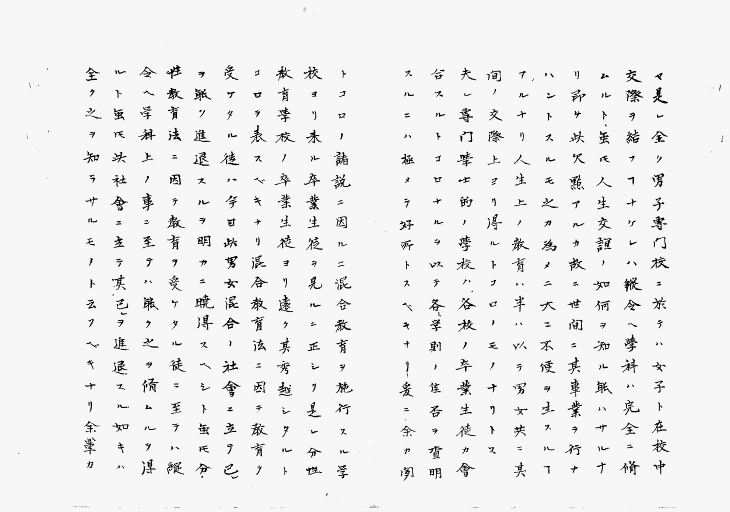 々是レ全ク男子専門校ニ於テハ女子ト在校中
交際ヲ結フヿナケレハ縦令ヘ學科ハ完全ニ脩
ムルト虽𪜈人生交誼ノ如何ヲ知ル能ハサルナ
リ即チ此欠㸃アルカ故ニ世間ニ其事業ヲ行ナ
ハントスルモ之カ為メニ大ニ不便ヲ生スルヿ
アルナリ人生上ノ敎育ハ半ハ以テ男女共ニ其
間ノ交際上ヨリ得ルトコロノモノナリトス
夫レ専門學士的ノ學校ハ各校ノ卒業生徒カ會
合スルトコロナルヲ以テ各學則ノ佳否ヲ査明
スルニハ極メテ好所トスベキナリ爰ニ余カ聞
トコロノ諸説ニ因ルニ混合敎育ヲ施行スル学
校ヨリ来ル卒業生徒ヲ見ルニ正シク是レ分性
敎育學校ノ卒業生徒ヨリ遠ク其秀越シタルト
コロヲ表スベキナリ混合敎育法ニ因テ敎育ヲ
受ケタル徒ハ今日此男女混合ノ社會ニ立テ己
ヲ能ク進退スルヲ明カニ暁得スヘシト虽𪜈分
性敎育法ニ因テ敎育ヲ受ケタル徒ニ至テハ縦
令ヘ学科上ノ事ニ至テハ能ク之ヲ脩ムルヲ得
ルト虽𪜈此社會ニ立テ其己ヲ進退スル如キハ
全ク之ヲ知ラサルモノト云フベキナリ余輩カ